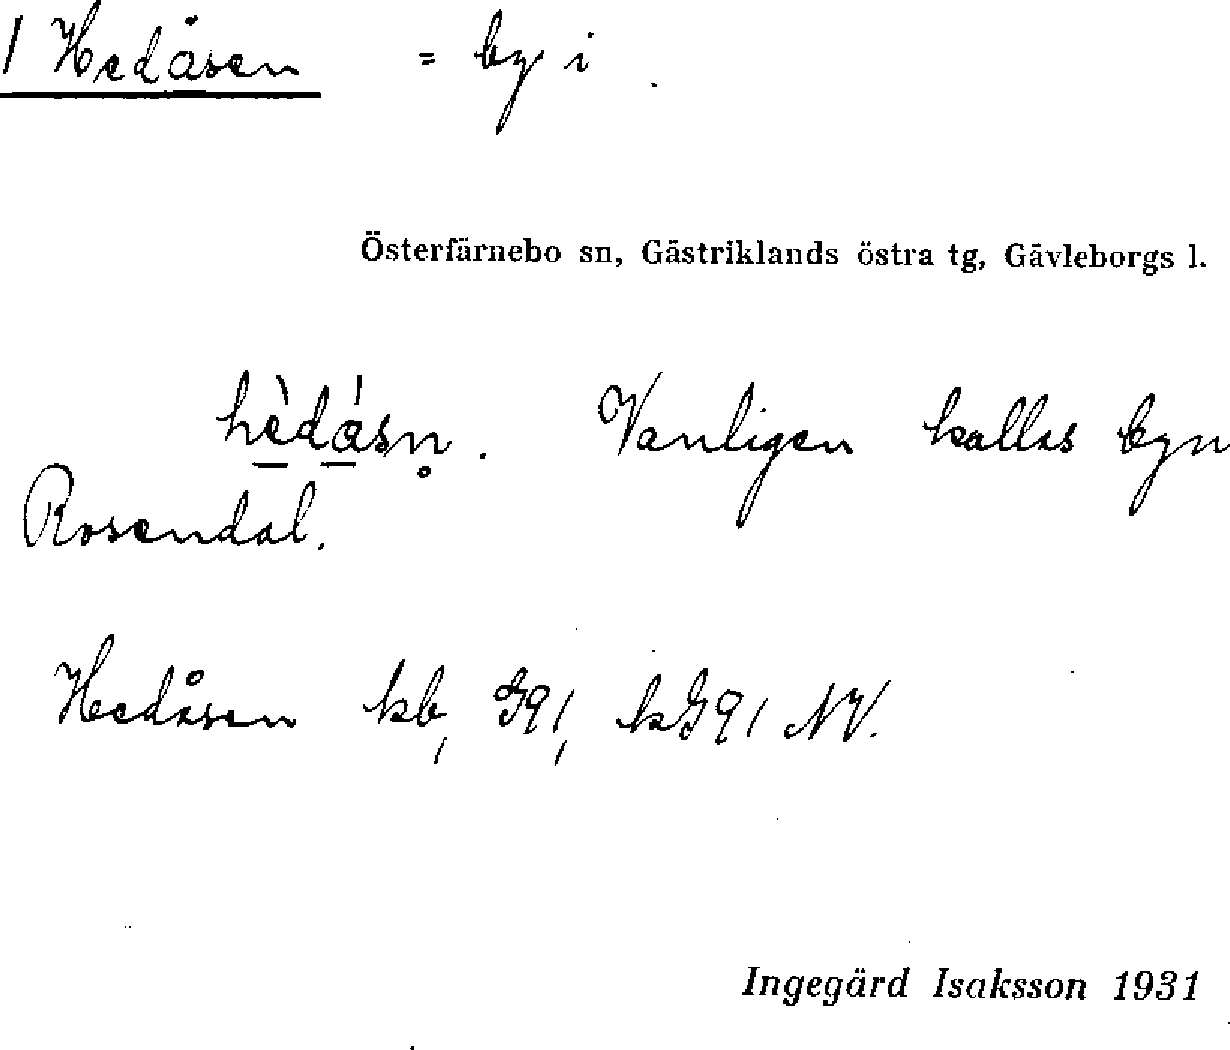 1 Hedåsen = by i
Österfärnebo sn, Gästriklands östra tg, Gävleborgs l.
hèdásn̥. Vanligen kallas byn
Rosendal.
Hedåsen kb, G91, kG91 NV.
Ingegärd Isaksson 1931